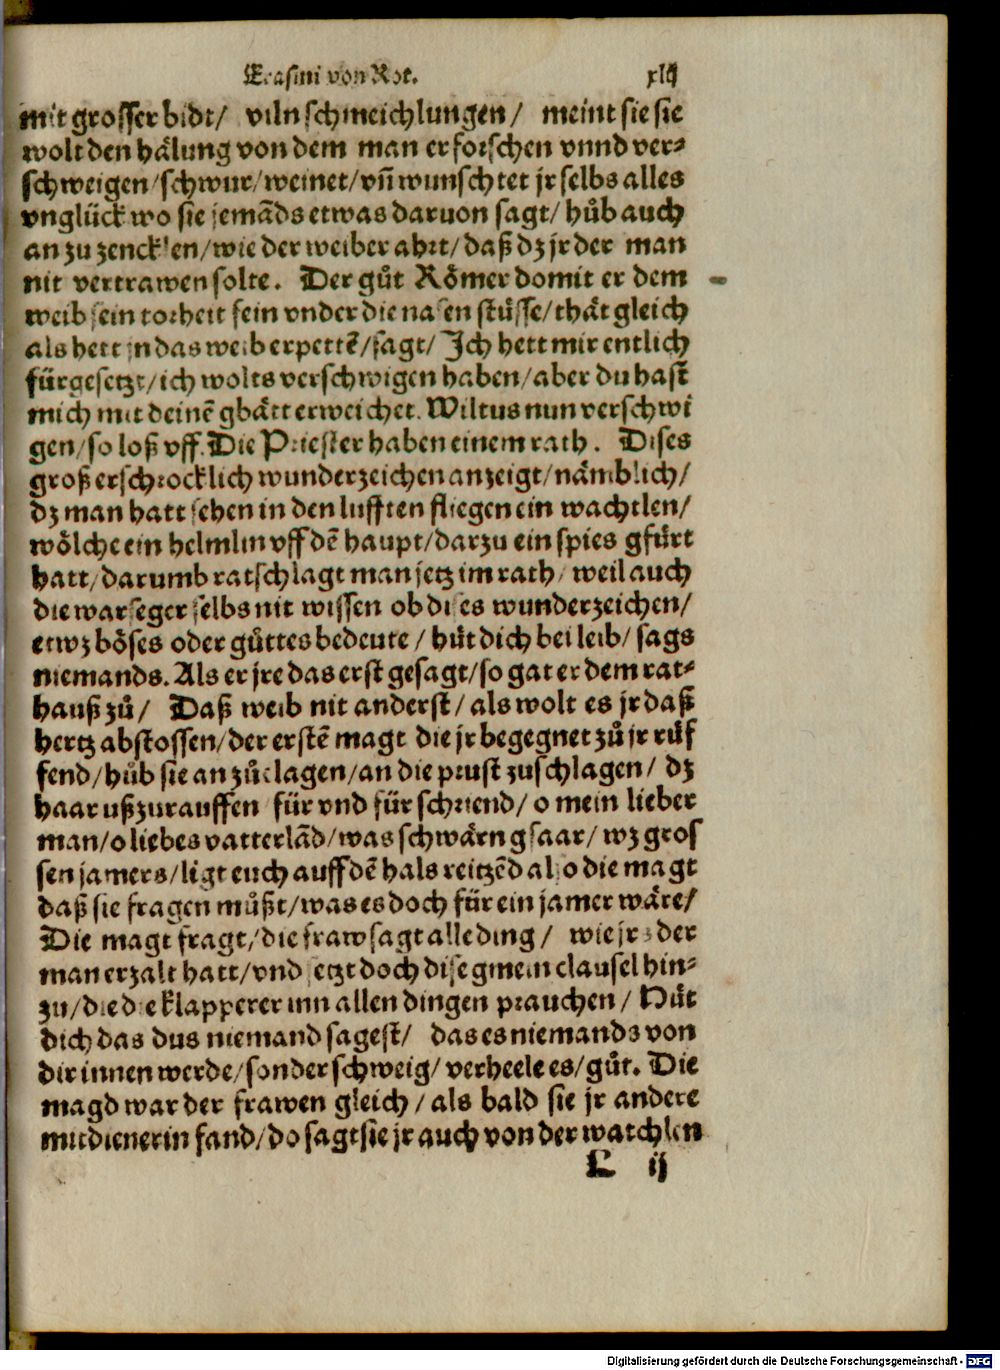 Erasmi von Rot. xliij
mit grosser bidt/ viln schmeichlungen/ meint sie sie
wolt den hälung von dem man erforschen vnnd ver⸗
schweigen/schwur/weinet/vñ wunschtet jr selbs alles
vnglück wo sie jemāds etwas daruon sagt/ hůb auch
an zu zencken/wie der weiber ahrt/daß dz jr der man
nit vertrawen solte. Der gůt Römer domit er dem
weib sein torheit sein vnder die nasen stůsse/thät gleich
als hett jn das weib erpettē/sagt/ Ich hett mir entlich
fürgesetzt/ich wolts verschwigen haben/aber du hast
mich mit deinē gbätt erweichet. Wiltus nun verschwi
gen/so loß vff. Die Priester haben einem rath. Dises
groß erschrocklich wunderzeichen anzeigt/nämblich/
dz man hatt sehen in den lufften fliegen ein wachtlen/
wölche ein helmlin vff dē haupt/darzu ein spies gfürt
hatt/darumb ratschlagt man jetz im rath/ weil auch
die warseger selbs nit wissen ob dises wunderzeichen/
etwz böses oder gůttes bedeute/ hüt dich bei leib/ sags
niemands. Als er jre das erst gesagt/so gat er dem rat⸗
hauß zů/ Daß weib nit anderst/ als wolt es jr daß
hertz abstossen/der erstē magt die jr begegnet zů jr růf
fend/hůb sie an zů clagen/an die prust zuschlagen/ dz
haar uß zurauffen für vnd für schriend/ o mein lieber
man/o liebes vatterlād/was schwärn gfaar/ wz gros
sen jamers/ligt euch auff dē hals reitzēd also die magt
daß sie fragen můßt/was es doch für ein jamer wäre/
Die magt fragt/die fraw sagt alle ding/ wie jrs der
man erzalt hatt/vnd setzt doch dise gmein clausel hin⸗
zu/die die klapperer inn allen dingen prauchen/ Hüt
dich das dus niemand sagest/ das es niemands von
dir innen werde/sonder schweig/ verheele es/gůt. Die
magd war der frawen gleich/ als bald sie jr andere
mitdienerin fand/do sagt sie jr auch von der watchlen
L ij
Digitalisierung gefördert durch die Deutsche Forschungsgemeinschaft - DFG